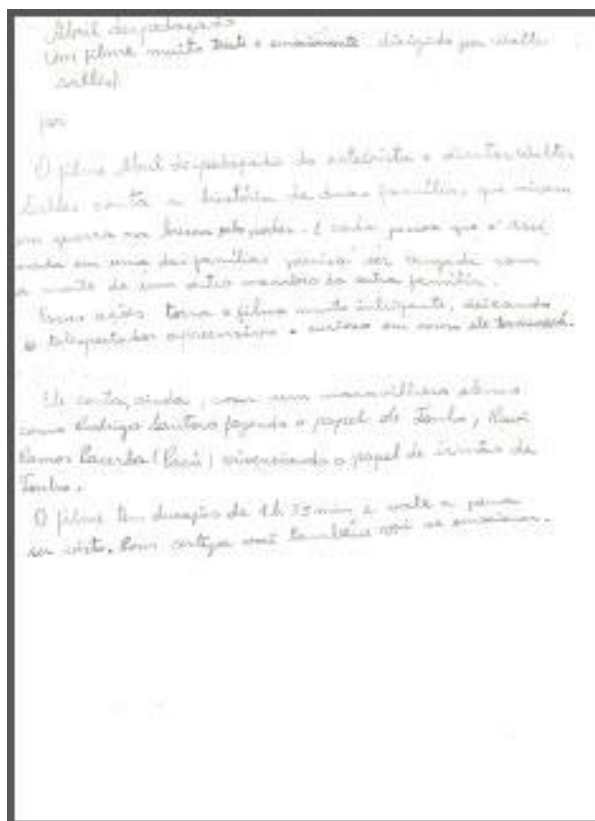 Abril despedaçado
Um filme muito triste e emocionante dirigido por Walter
Salles.
por
O filme Abril despedaçado do e diretor Walter
Salles conta a história de duas famílias, que vivem
em guerra na busca pelo poder. E cada pessoa que é
em uma das famílias precisa ser vingada com
a morte de um outro membro da outra família.
Essas torna o filme muito intrigante, deixando
o telespectador apreensivo e curioso em como ele terminará.
Ele conta, ainda, com um maravilhoso elenco
como Rodrigo Santoro fazendo o papel de Tonho,
Ramos Lacerda (Pacu) vivenciando o papel de irmão de
Tonho.
O filme tem duração de 1h e vale a pena
ser visto. Com certeza você também vai se emocionar.